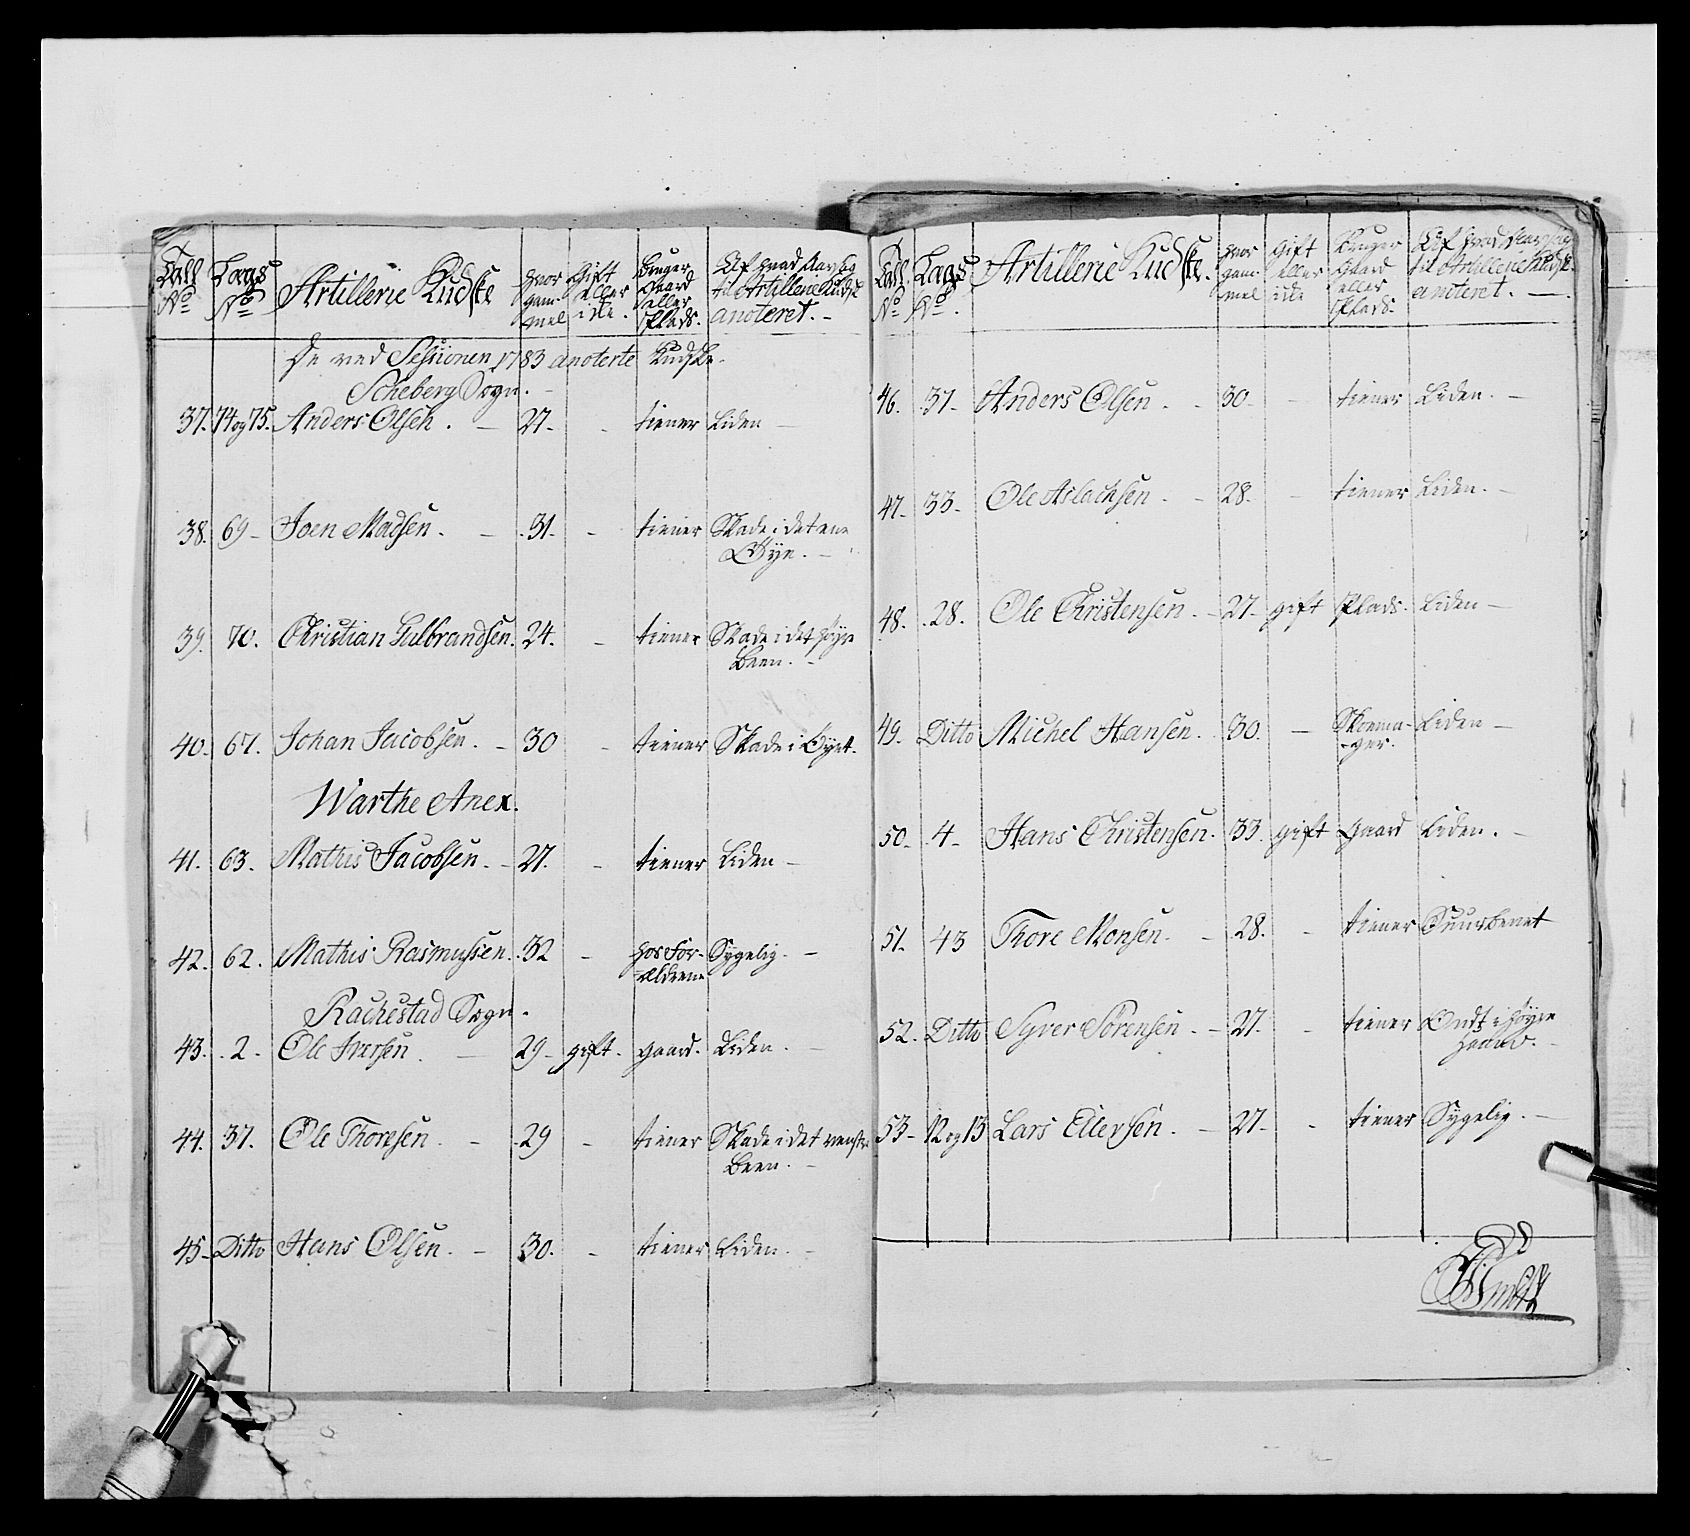 Tall No Lægs No Artillerie Kudske hvor gammel Gift eller ide. bruger Gaard eller Plads. Af hvad Aarsag til Artillerie Kudsk anoteret. -
De ved Sessionen 1783 anoterte Kudske.
Scheberg Sogn. -
37. 74 og 75. Anders Olsen. - 27. - tiener Liden -
38. 69 - Joen Madsen. - 31. - tiener Skade i det ene
Øye. -
39. 70. Christian Gulbrandsen. 24. - tiener Skade i det høyre
Been. -
40. 67. Johan Jacobsen. - 30 - tiener Skade i Øyet.
Warthe Anex.
41. 63. Mathis Jacobsen. - 27. - tiener Liden -
42. 62. Mathis Rasmussen. 32 - hos For-
ældrene Sygelig. -
Rachestad Sogn.
43. 2. Ole Iversen. - 29 - gift. gaard. Liden. -
44. 37. Ole Thoresen. - 29 - tiener Skade i det venstre
Been. -
45 - Ditto Hans Olsen. - 30. - tiener Liden. -
Tall No Lægs No. Artillerie Kudske. hvor gammel Gift eller ide Bruger Gaard eller Plads. Af hvad Aarsag til Artillerie Kudsk. anoteret. -
46. 37 - Anders Olsen. - 30 - - tiener Liden. -
47. 33. Ole Aslachsen. - 28. - tiener Liden. -
48. 28. Ole Christensen. - 27. gift Plads. Liden -
49. Ditto Michel Hansen. 30. - Skoema-
ger. Liden -
50. 4 - Hans Christensen. 33. gift gaard Liden. -
51. 43 Thore Monsen. - 28. - tiener Suurbenet
52. Ditto Syver Sörensen. - 27. - tiener Ondt i høyre
Haand. -
53 - 12 og 13 Lars Ellevsen. - 27 - - tiener Sygelig. -